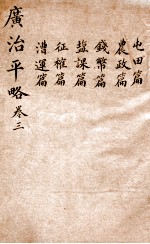 屯田篇
農政篇
錢幣篇
鹽課篇
征榷篇
漕運篇
廣治平略卷三